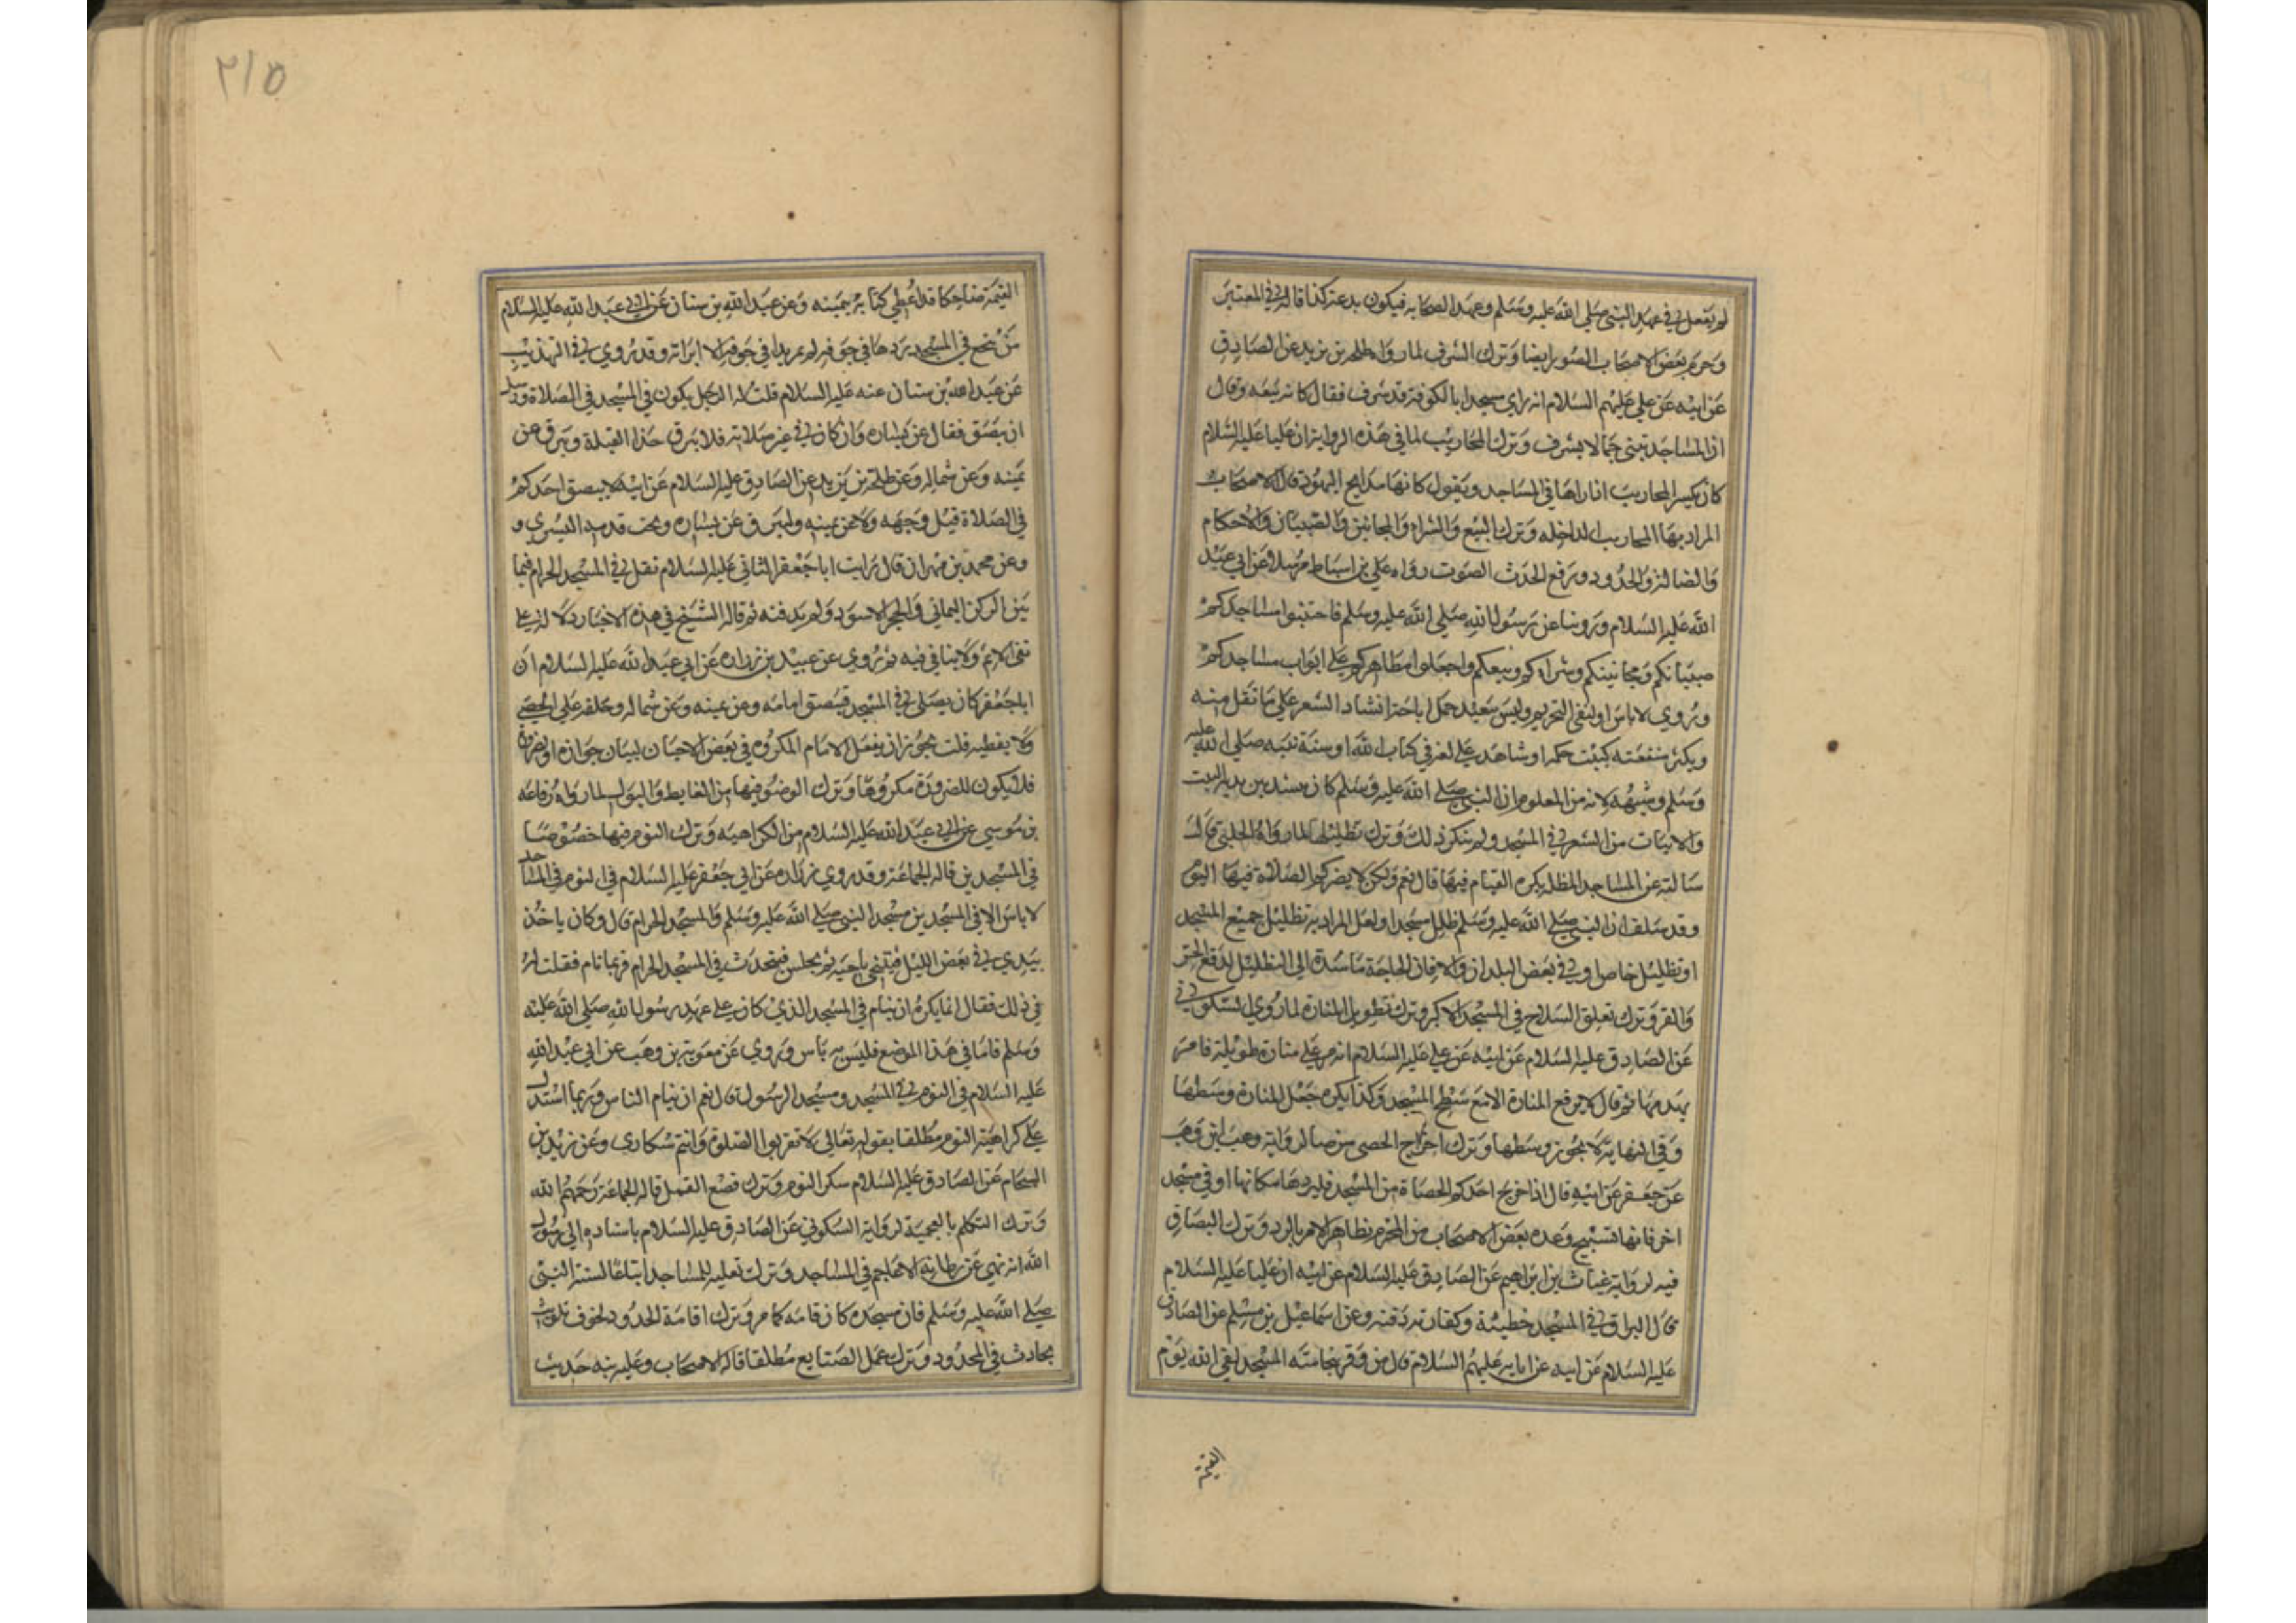 لم يفعل في عهد النبي صلى الله عليه وسلم وعهد الصحابه فيكون بدعة كذا قاله في المعتبر
وحرم بعض الاصحاب الصور ايضا وترك الشرف لما رواه طلحة بن زيد عن الصادق
عن ابيه عن علي عليهم السلام انه راى مسجدا بالكوفة قد شرف فقال كانه بيعه وقال
ان المساجد تبنى جما لا تشرف وترك المحاريب لما في هذه الرواية ان عليا عليه السلام
كان يكسر المحاريب اذا راها في المساجد ويقول كانها مذابح اليهود قال الاصحاب
المراد بها المحاريب الداخله وترك البيع والشراء والمجانين والصبيان والاحكام
والضالة والحدود ورفع الحدث الصوت رواه علي بن اسباط مرسلا عن ابي عبد
الله عليه السلام وروينا عن رسول الله صلى الله عليه وسلم فاجتنبوا مساجدكم
صبيانكم ومجانينكم وشراءكم وبيعكم واجعلوا مطاهركم على ابواب مساجدكم
وروي لا باس اولنفي التحريم وليس ببعيد حمل اباحة انشاد الشعر على ما تقل منه
ويكثر منفعته كبيت حكمة او شاهد على لغة في كتاب الله او سنة نبيه صلى الله عليه
وسلم وشبهه لانه من المعلوم ان النبي صلى الله عليه وسلم كان ينشد بين يديه البيت
والابيات من الشعر في المسجد ولم ينكر ذلك وترك تظليلها لما رواه الحلبي قال
سالته عن المساجد المظللة يكره القيام فيها قال نعم ولكن لا يضركم الصلاة فيها اليوم
وقد سلف ان النبي صلى الله عليه وسلم ظلل مسجدا ولعل المراد به تظليل جميع المسجد
او تظليل خاص او في بعض البلدان والا فان الحاجة ماسة الى التظليل لدفع الحر
والقر وترك تعليق السلاح في المسجد الاكبر وترك تطويل المنارة لما روى السكوني
عن الصادق عليه السلام عن ابيه عن علي عليه السلام انه مر على منارة طويلة فامر
بهدمها ثم قال لا ترفع المنارة الا مع سطح المسجد وكذا يكره جعل المنارة وسطها
وفي النهاية لا يجوز وسطها وترك اخراج الحصى من صالر واية وهب ابن وهب
عن جعفر عن ابيه قال اذا اخرج احدكم الحصاة من المسجد فليردها مكانها او في مسجد
اخر فانها تسبح وعده بعض الاصحاب من المحرم لظاهر الامر بالرد وترك البصاق
فيه لرواية غياث بن ابراهيم عن الصادق عليه السلام عن ابيه ان عليا عليه السلام
قال البزاق في المسجد خطيئة وكفارته دفنه وعن اسماعيل بن مسلم عن الصادق
عليه السلام عن ابيه عن ابايه عليهم السلام قال من وقر بنخامته المسجد لقي الله يوم
القيمة
٢١٥
القيمة ضاحكا قد اعطي كتابه بيمينه وعن عبد الله بن سنان عن ابي عبد الله عليه السلام
من تنخع في المسجد ثم ردها في جوفه لم تمر بداء في جوفه الا ابراته وقد روي في التهذيب
عن عبد الله بن سنان عنه عليه السلام قلت له الرجل يكون في المسجد في الصلاة ويريد
ان يبصق فقال عن يساره وان كان في غير صلاته فلا يبزق حذا القبلة ويبزق عن
يمينه وعن شماله وعن طلحة بن زيد عن الصادق عليه السلام عن ابيه لا يبصق احدكم
في الصلاة قبل وجهه ولا عن يمينه وليبزق عن يساره وتحت قدمه اليسرى و
وعن محمد بن مهران قال رايت ابا جعفر الثاني عليه السلام تفل في المسجد الحرام فيما
بين الركن اليماني والحجر الاسود ولم يدفنه ثم قال الشيخ في هذه الاخبار دلالة على
نفي الاثم ولا ينافي فيه ثم روى عن عبيد بن زرارة عن ابي عبد الله عليه السلام ان
ابا جعفر كان يصلي في المسجد فيبصق امامه وعن يمينه وعن شماله وخلفه على الحصى
ولا يغطيه قلت يجوز ان يفعل الامام المكروه في بعض الاحيان لبيان جوازه او لضرورة
فلا يكون للضرورة مكروها وترك الوضوء فيها من الغايط والبول لما رواه رفاعه
بن موسى عن ابي عبد الله عليه السلام من الكراهيه وترك النوم فيها خصوصا
في المسجدين قاله الجماعة وقد روى زرارة عن ابي جعفر عليه السلام في النوم في المساجد
لا باس الا في المسجدين مسجد النبي صلى الله عليه وسلم والمسجد الحرام قال وكان ياخذ
بيدي في بعض الليل فيتنحى ناحية ثم يجلس فيتحدث في المسجد الحرام فربما نام فقلت له
في ذلك فقال انما يكره ان ينام في المسجد الذي كان على عهد رسول الله صلى الله عليه
وسلم فاما في هذا الموضع فليس به باس وروى عن معوية بن وهب عن ابي عبد الله
عليه السلام في النوم في المسجد ومسجد الرسول قال نعم اين ينام الناس وربما استدل
على كراهية النوم مطلقا بقوله تعالى لا تقربوا الصلوة وانتم سكارى وعن زيد بن
الشحام عن الصادق عليه السلام سكر النوم وترك قصع القمل قاله الجماعة رحمهم الله
وترك التكلم بالعجمية لرواية السكوني عن الصادق عليه السلام باسناده الى رسول
الله انه نهى عن رطانة الاعاجم في المساجد وترك تعليه المساجد اتباعا لسنة النبي
صلى الله عليه وسلم فان مسجده كان قامه كما مر وترك اقامة الحدود لخوف تلويث
بحادث في المحدود وترك عمل الصنايع مطلقا قاله الاصحاب وعليه نبه حديث